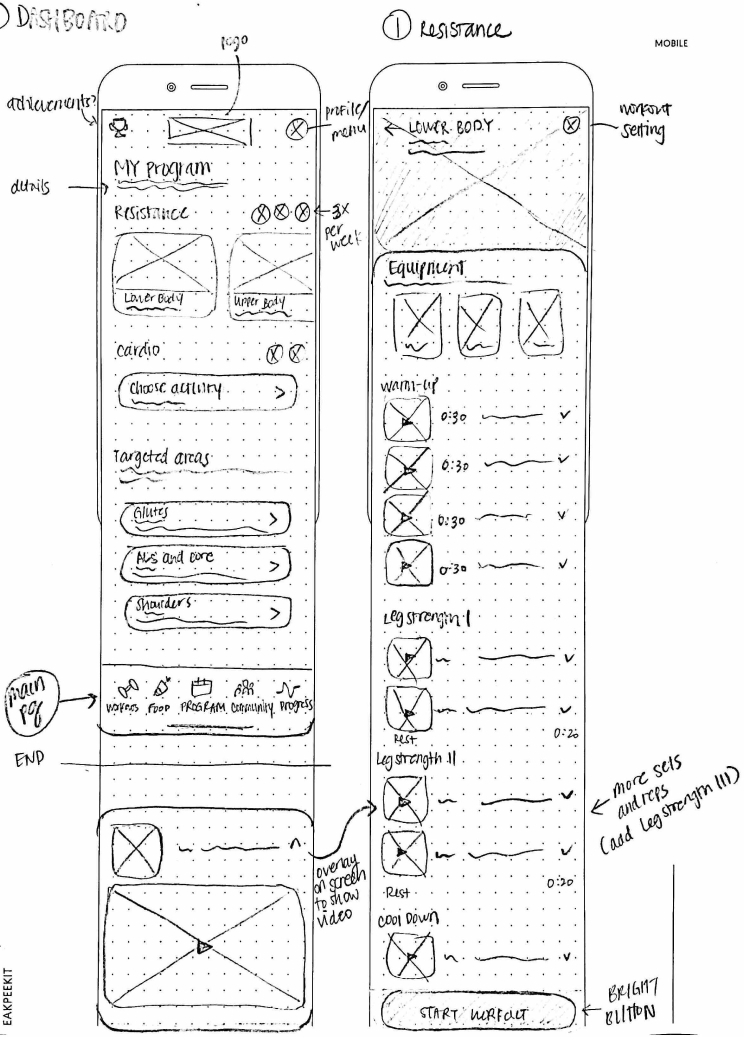 DASHBOARD
logo
achievements?
profile/
menu
MY program
details
Resistance
3x
per
week
Lower Body
Upper Body
cardio
Choose activity
Targeted areas
Glutes
Abs and core
Shoulders
main
pg
workouts FOOD PROGRAM Community Progress
END
overlay
on screen
to show
video
EAKPEEKIT
1 Resistance
MOBILE
LOWER BODY
workout
setting
Equipment
warm-up
0:30
0:30
0:30
0:30
Leg strength I
Rest
0:20
Leg strength II
more sets
and reps
(add leg strength III)
Rest
0:20
Cool Down
START WORKOUT
BRIGHT
BUTTON